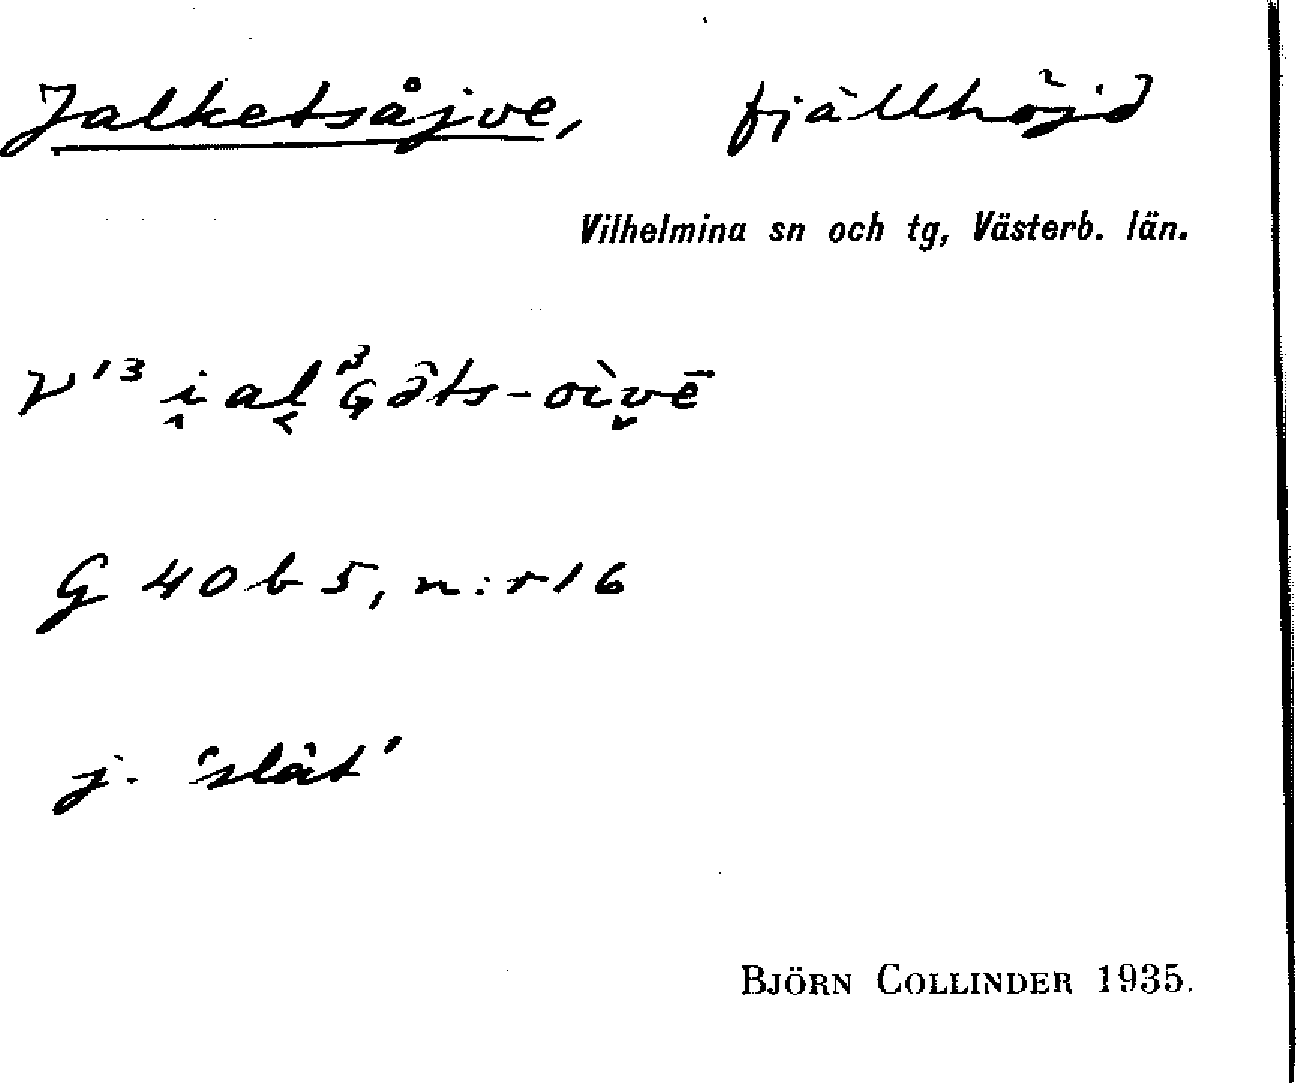 Jalketsåjve, fjällhöjd
Vilhelmina sn och tg, Västerb. län.
V13
G 40 b 5, n:r 16
j. 'slät'
BJÖRN COLLINDER 1935.